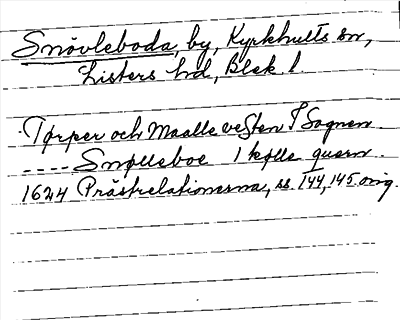 Snövleboda, by, Kyrkhults sn,
Listers hd, Blek l.
Tørper och Maalle vesten I Sognen
---- Snølleboe 1 kølle quern.
1624 Prästrelationerna, ss. 144, 145 orig.